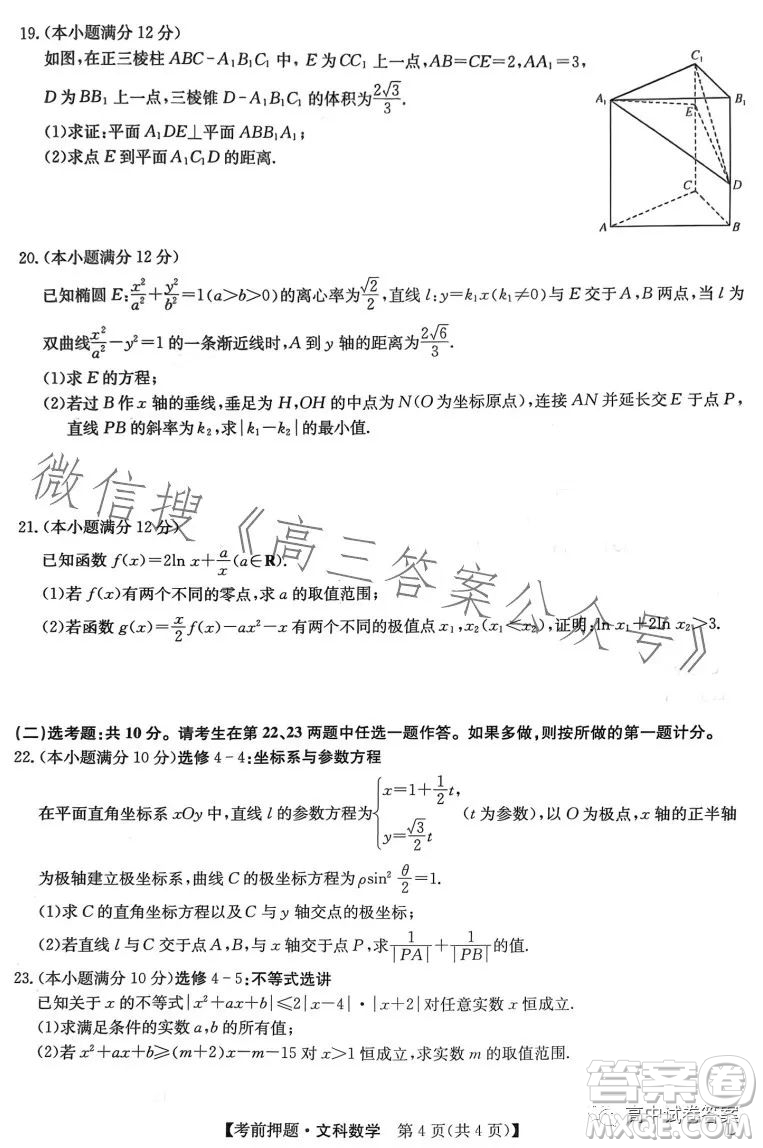 19.(本小题满分12分)
如图,在正三棱柱ABC-A₁B₁C₁中,E为CC₁上一点,AB=CE=2,AA₁=3,
D为BB₁上一点,三棱锥D-A₁B₁C₁的体积为2√3/3.
(1)求证:平面A₁DE⊥平面ABB₁A₁;
(2)求点E到平面A₁C₁D的距离.
C₁
A₁
B₁
E
C
D
A
B
20.(本小题满分12分)
已知椭圆E:x²/a²+y²/b²=1(a>b>0)的离心率为√2/2,直线l:y=k₁x(k₁≠0)与E交于A,B两点,当l为
双曲线x²/a²-y²=1的一条渐近线时,A到y轴的距离为2√6/3.
(1)求E的方程;
(2)若过B作x轴的垂线,垂足为H,OH的中点为N(O为坐标原点),连接AN并延长交E于点P,
直线PB的斜率为k₂,求|k₁-k₂|的最小值.
微信搜《高三答案公众号》
21.(本小题满分12分)
已知函数f(x)=2ln x+a/x(a∈R).
(1)若f(x)有两个不同的零点,求a的取值范围;
(2)若函数g(x)=x/2f(x)-ax²-x有两个不同的极值点x₁,x₂(x₁<x₂),证明:ln x₁+2ln x₂>3.
(二)选考题:共10分。请考生在第22、23两题中任选一题作答。如果多做,则按所做的第一题计分。
22.(本小题满分10分)选修4-4:坐标系与参数方程
在平面直角坐标系xOy中,直线l的参数方程为{x=1+1/2t, y=√3/2t (t为参数),以O为极点,x轴的正半轴
为极轴建立极坐标系,曲线C的极坐标方程为ρsin²θ/2=1.
(1)求C的直角坐标方程以及C与y轴交点的极坐标;
(2)若直线l与C交于点A,B,与x轴交于点P,求1/|PA|+1/|PB|的值.
23.(本小题满分10分)选修4-5:不等式选讲
已知关于x的不等式|x²+ax+b|≤2|x-4|·|x+2|对任意实数x恒成立.
(1)求满足条件的实数a,b的所有值;
(2)若x²+ax+b≥(m+2)x-m-15对x>1恒成立,求实数m的取值范围.
答案圈
高中试卷答案
【考前押题·文科数学 第4页(共4页)】